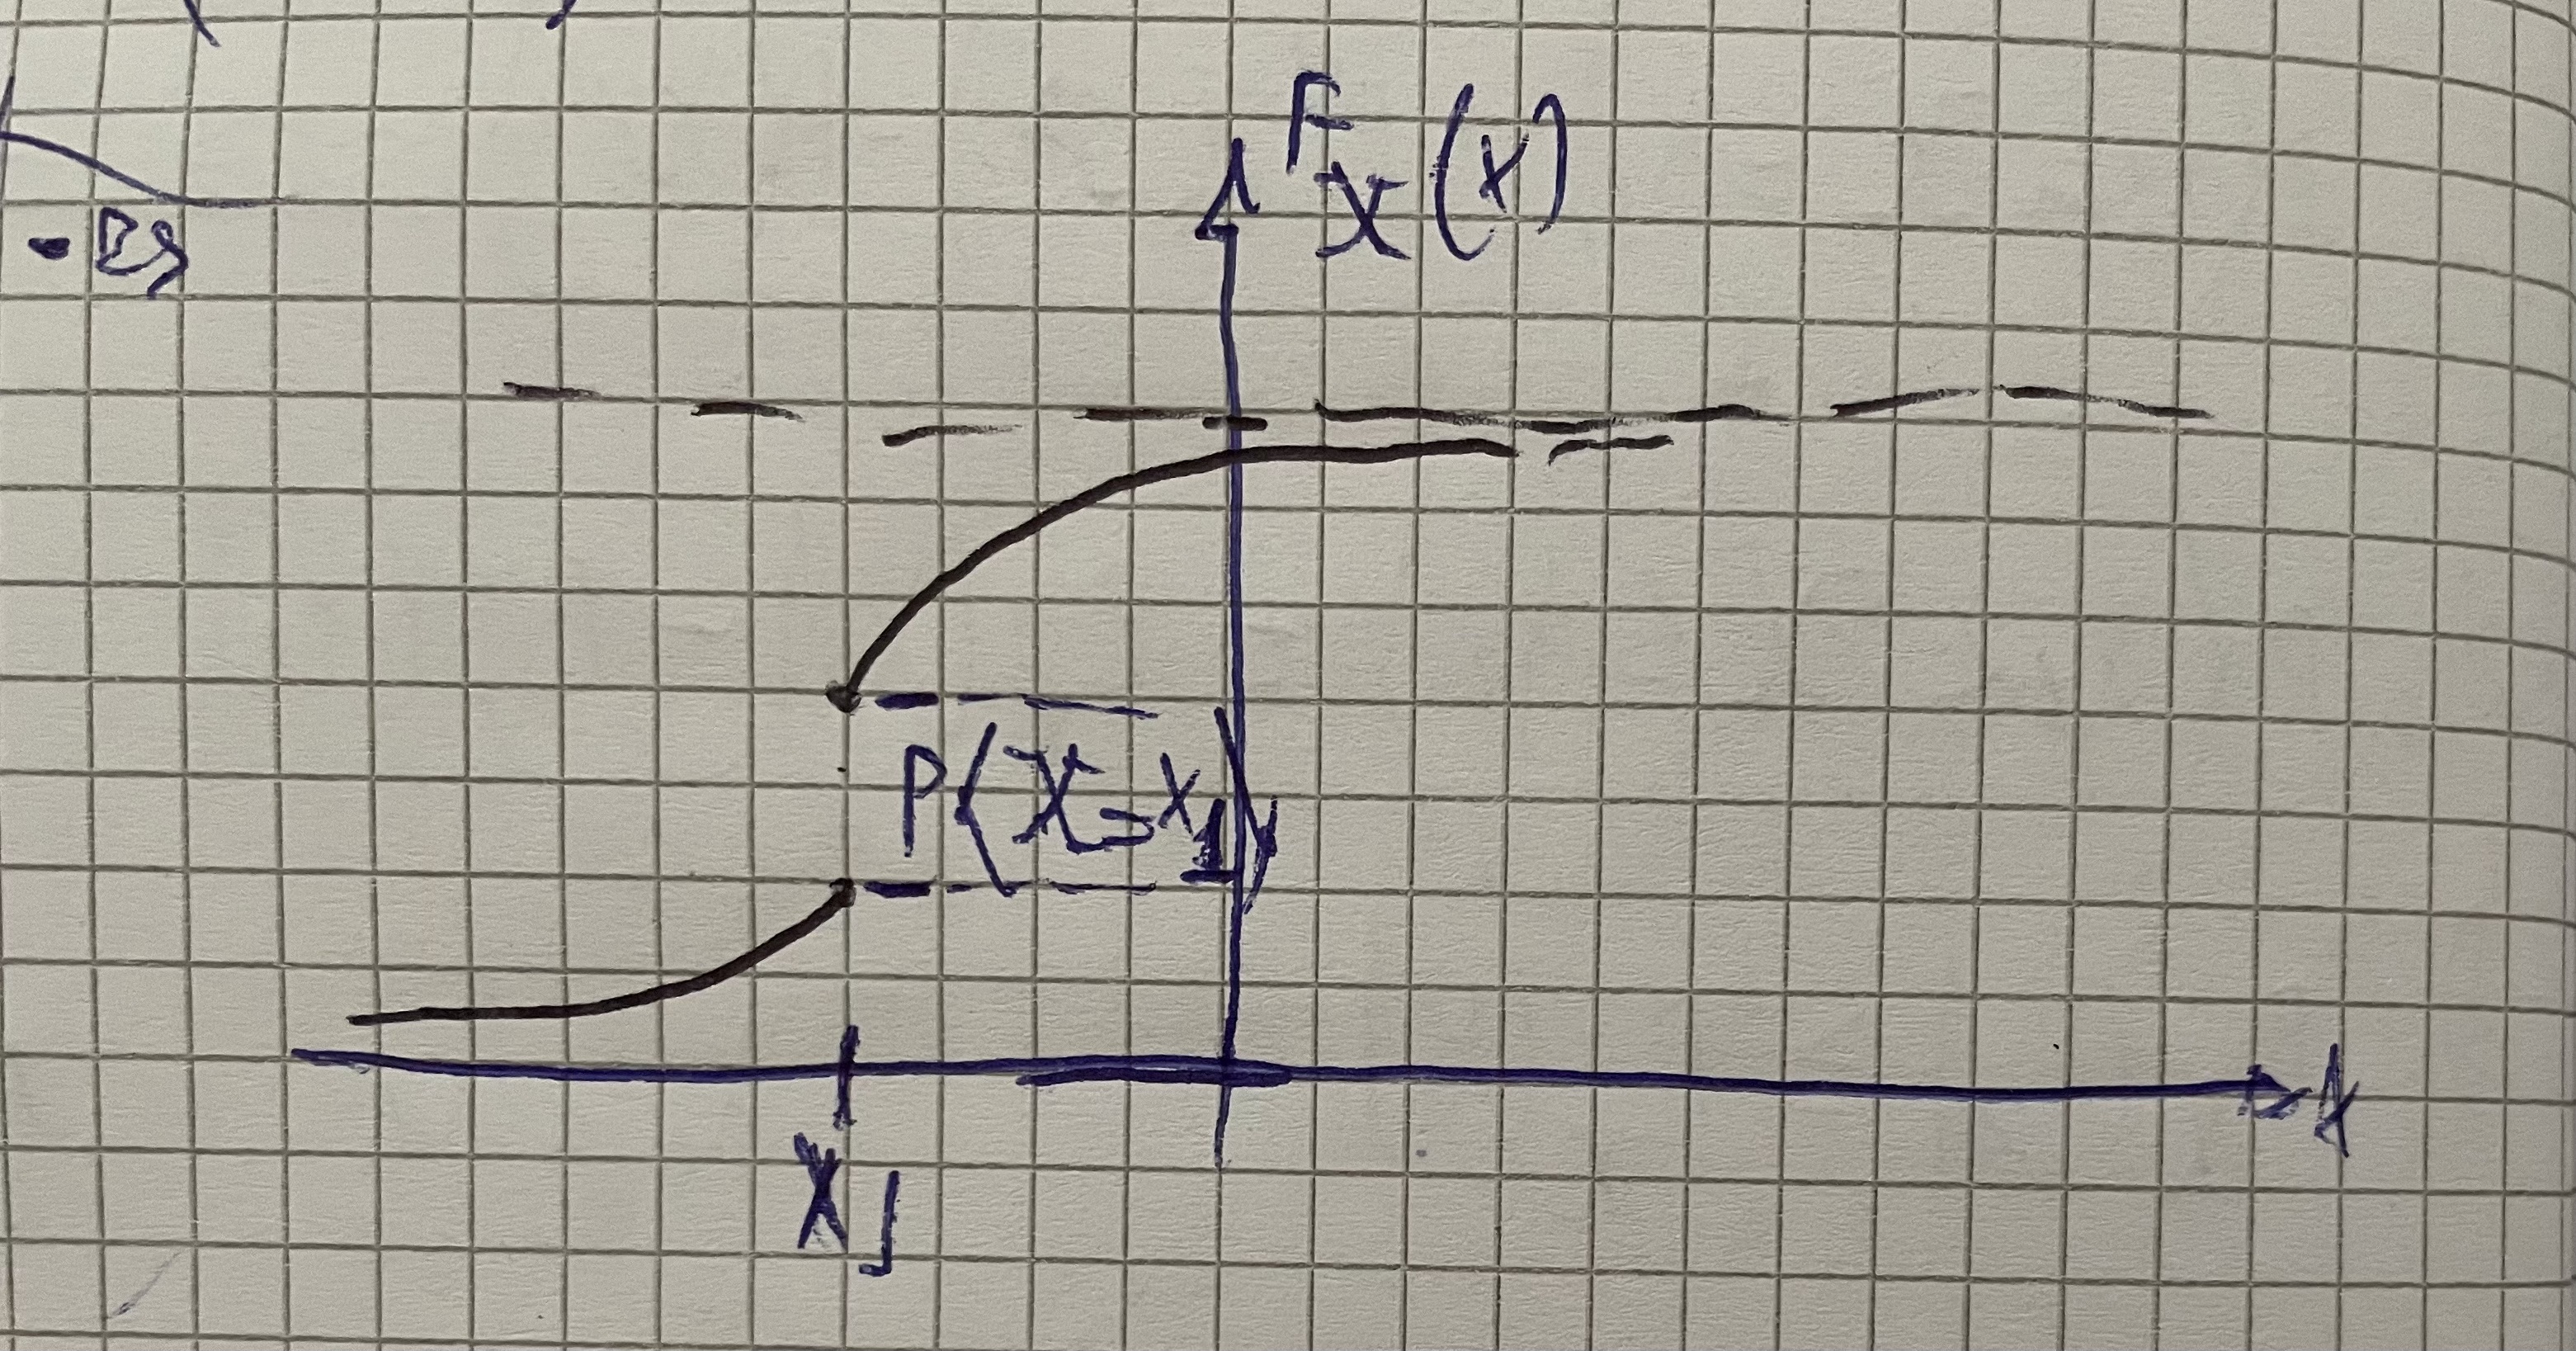 F_X(x)
P(X=x_1)
x
x_1